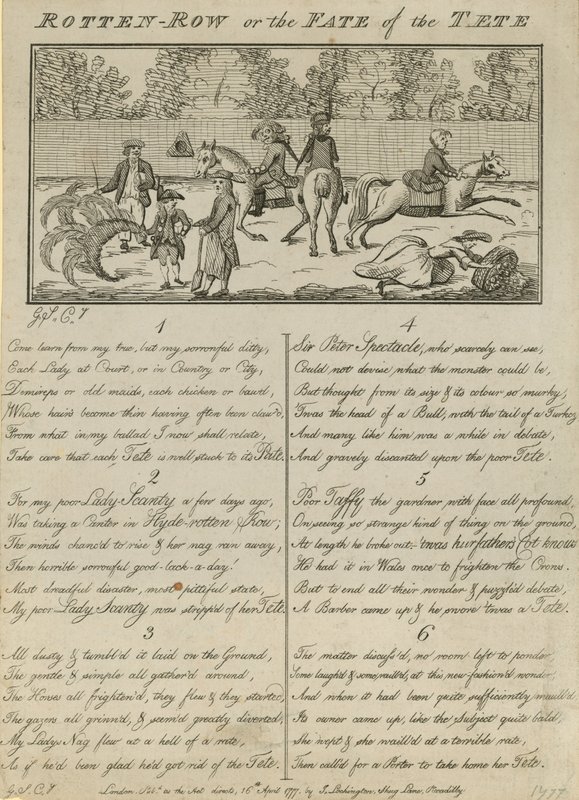 ROTTEN-ROW or the FATE of the TETE
G.S.C.
1
Come learn from my true, but my sorronful ditty,
Each Lady at Court, or in Country or City,
Demireps or old maids, each chicken or bawd,
Whose hair's become thin having often been claw'd,
From what in my ballad I now shall relate,
Take care that each Tete is well stuck to its Pate.
2
For my poor Lady Scanty a few days ago,
Was taking a Canter in Hyde-rotten Row;
The winds chanc'd to rise & her nag ran away,
Then horrible sorrouful good-lack-a-day!
Most dreadful disaster, most pittiful state,
My poor Lady Scanty was stripp'd of her Tete.
3
All dusty & tumbl'd it laid on the Ground,
The gentle & simple all gather'd around,
The Horses all frighten'd, they flew & they started,
The gazers all grinn'd, & seem'd greatly diverted,
My Ladys Nag flew at a hell of a rate,
As if he'd been glad he'd got rid of the Tete.
4
Sir Peter Spectacle, who scarcely can see,
Could not devise what the monster could be,
But thought from its size & its colour so murky,
Twas the head of a Bull, with the tail of a Turkey
And many like him was a while in debate,
And gravely discanted upon the poor Tete.
5
Poor Taffy the gardner with face all profound
On seeing so strange kind of thing on the ground,
At length he broke out, twas hur fathers Cot knows
He had it in Wales once to frighten the Crows.
But to end all their wonder & puzzl'd debate,
A Barber came up & he swore 'twas a Tete.
6
The matter discuss'd, no room left to ponder,
Some laugh'd & some rail'd, at this new-fashion'd wonder,
And when it had been quite sufficiently maull'd,
Its owner came up, like the Subject quite bald,
She wept & she waill'd at a terrible rate,
Then call'd for a Porter to take home her Tete.
G.S.C.
London. Pub. as the Act directs, 16th April 1777. by J. Lockington, Shug Lane, Piccadilly
1777